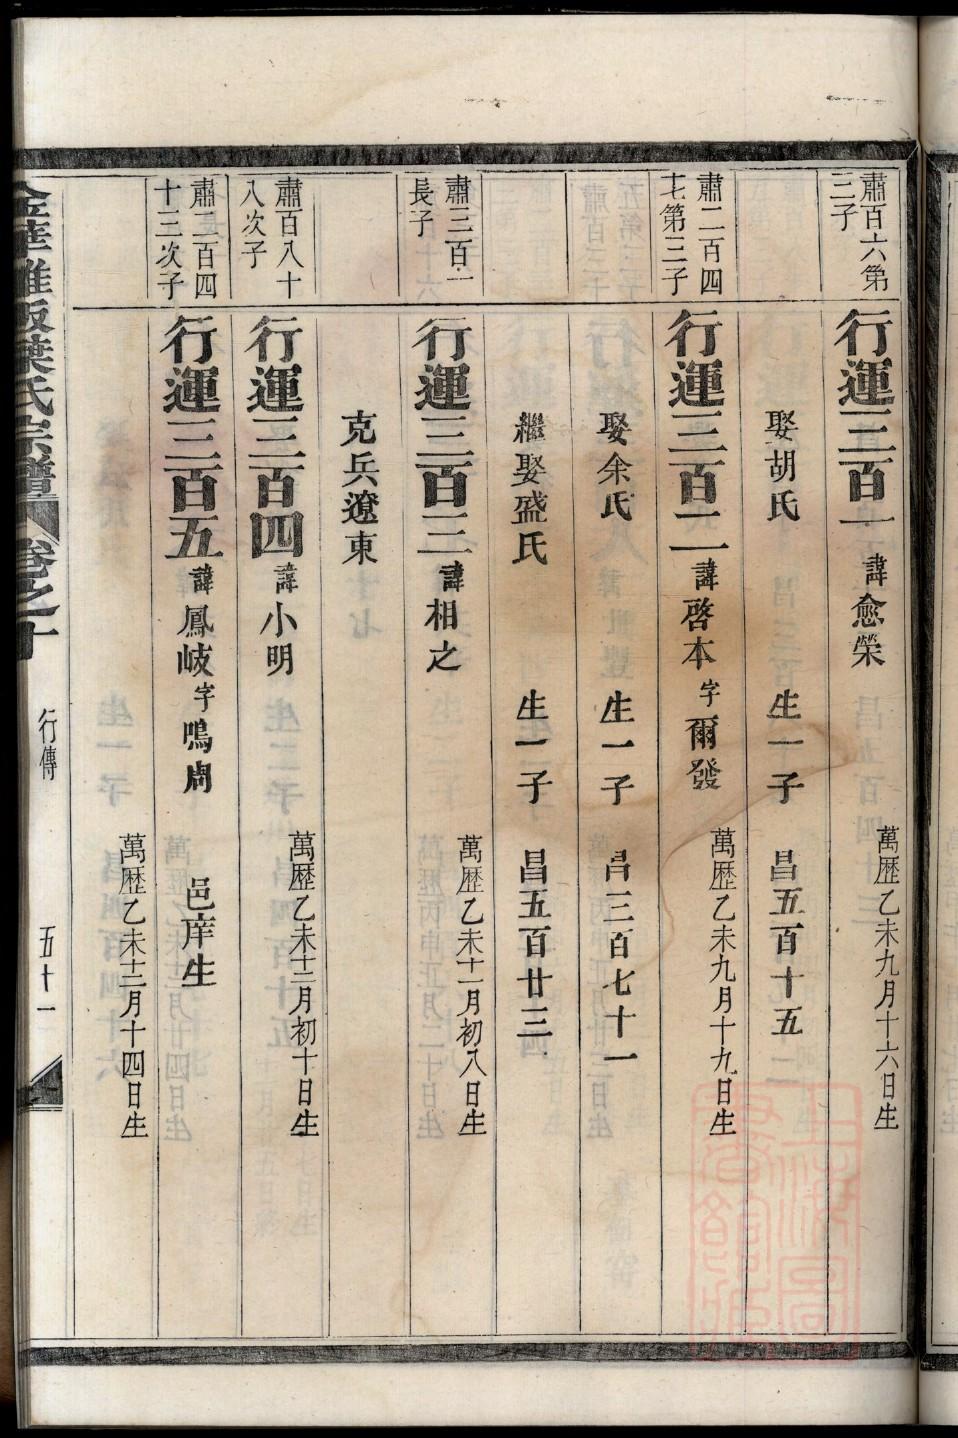 肅百六第
三子
行運三百一 諱愈榮 萬歷乙未九月十六日生
娶胡氏 生一子 昌五百十五
肅二百四
十七第三子
行運三百二 諱啓本 字爾發 萬歷乙未九月十九日生
娶余氏 生一子 昌三百七十一
繼娶盛氏 生一子 昌五百廿三
肅三百一
長子
行運三百三 諱相之 萬歷乙未十一月初八日生
克兵遼東
肅百八十
八次子
行運三百四 諱小明 萬歷乙未十二月初十日生
肅二百四
十三次子
行運三百五 諱鳳岐 字鳴周 邑庠生
萬歷乙未十二月十四日生
葉氏宗譜 卷之十 行傳 五十一